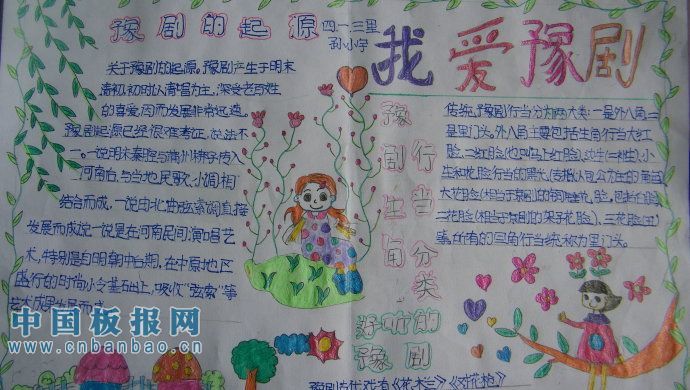 豫剧的起源
四一三里
孙小宇
我爱豫剧
关于豫剧的起源,豫剧产生于明末
清初,初时以清唱为主,深受老百姓
的喜爱,因而发展非常迅速。
豫剧起源已经很难考证,说法不
一。一说明末秦腔与蒲州梆子传入
河南后,与当地民歌、小调相
结合而成,一说由北曲弦索调直接
发展而成;一说是在河南民间演唱艺
术,特别是自明朝中后期,在中原地区
盛行的时尚小令基础上,吸收“弦索”等
艺术成果发展而成
豫剧生旦
行当分类
传统豫剧行当分为两大类:一是外八角二
是里门头。外八角主要包括生角行当大红
脸、二红脸(也叫马上红脸)、边生(二补生)、小
生和花脸行当的黑
大花脸(相当于京剧的铜锤花脸
二花脸(相当于京剧的架子花脸)、三花脸(丑)
等,所有的旦角行当统称为里门头。
好听的
豫剧
豫剧古代戏有《花木兰》《对花枪》
中国板报网
www.cnbanbao.cn